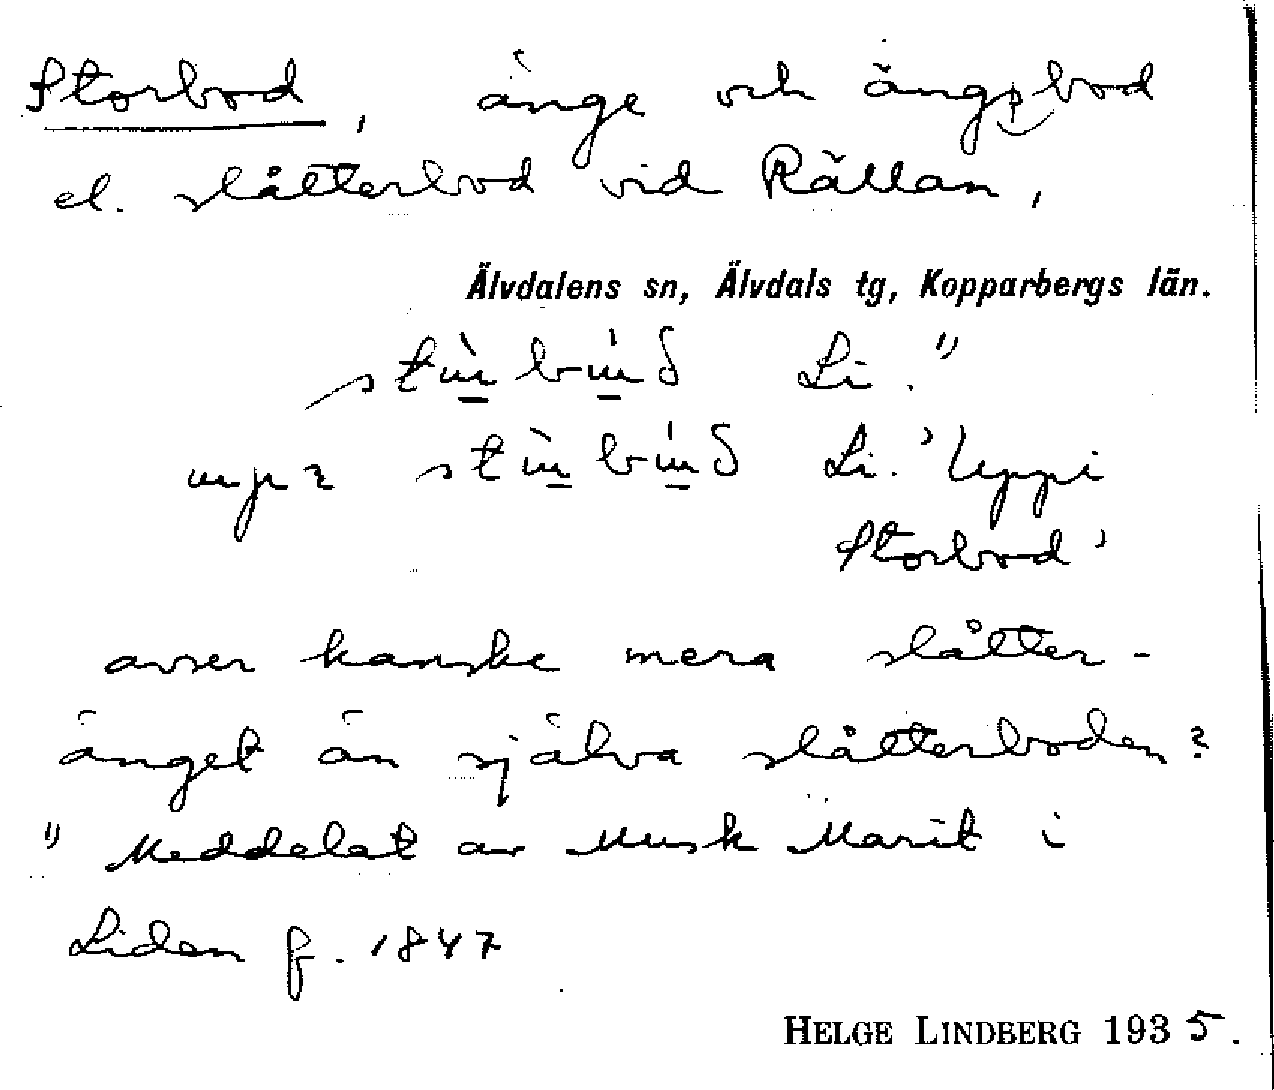 Storbod, änge och ängsbod
el. slåtterbod vid Rällan,
Älvdalens sn, Älvdals tg, Kopparbergs län.
Li. 1)
Li. 'Uppi
Storbod'
avser kanske mera slåtter-
änget än själva slåtterboden?
1) Meddelat av Musk Marit i
Liden f. 1847
HELGE LINDBERG 1935.